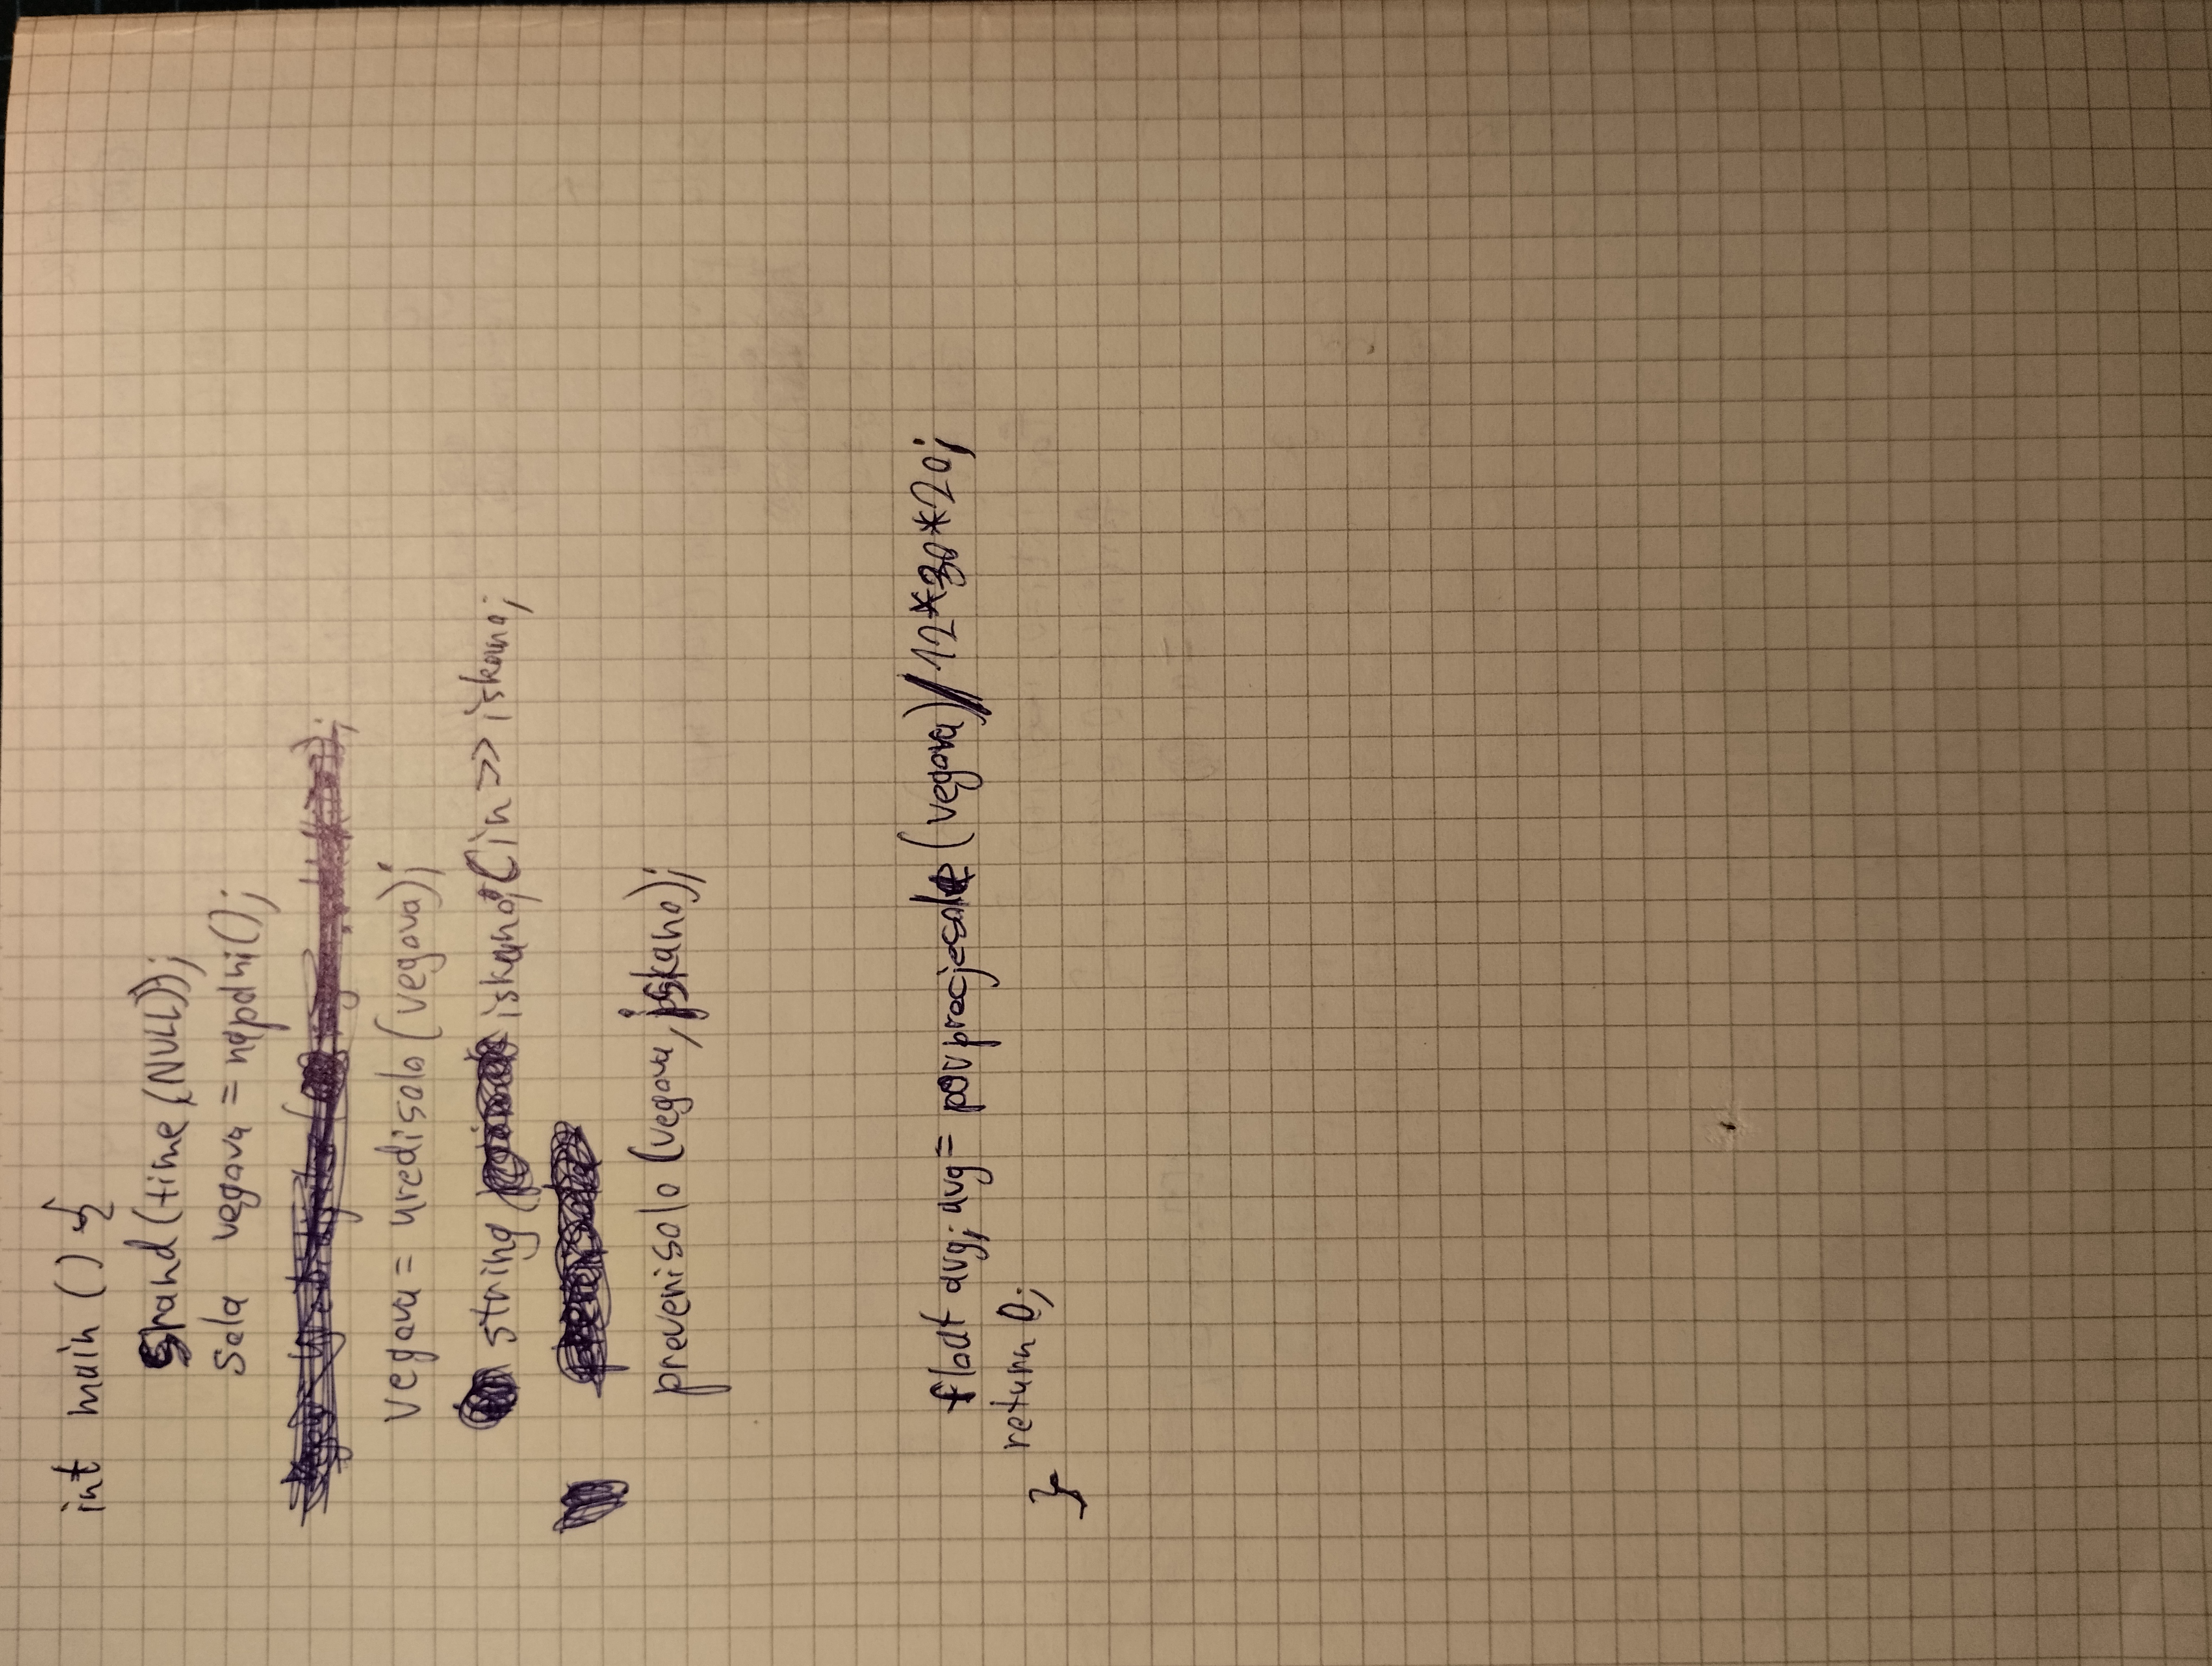 int main () {
srand(time(NULL));
sola vegova = napolni();
vegova = uredisolo(vegova);
string iskano; Cin >> iskano;
preverisolo (vegova, iskano);
float avg; avg = povprecjesole (vegova)/12*30*20;
return 0;
}